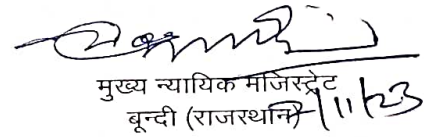 मुख्य न्यायिक मजिस्ट्रेट
बून्दी (राजस्थान)
/11/23